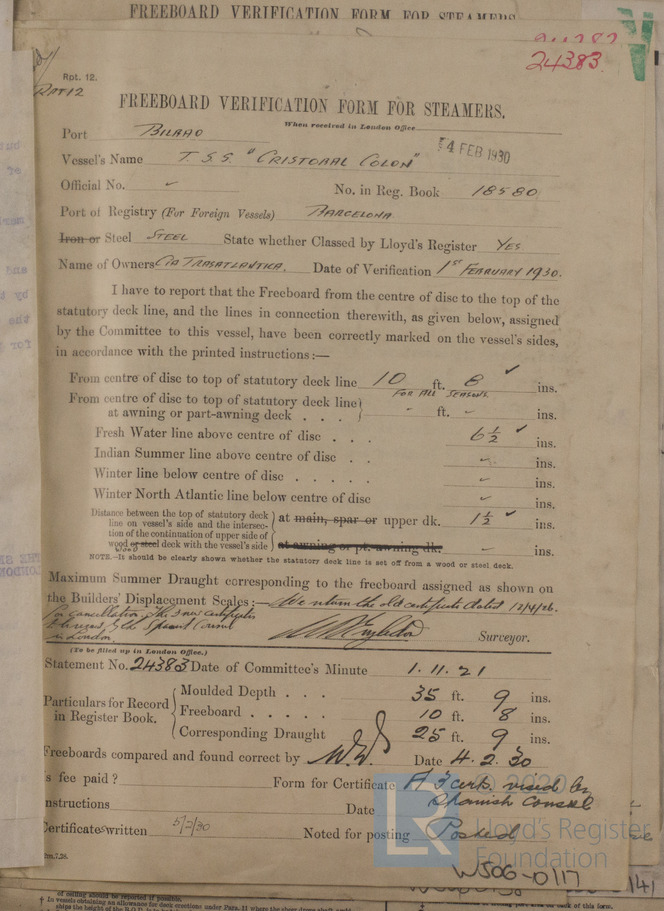 FREEBOARD VERIFICATION FORM FOR STEAMERS
24383
24383.
Rpt. 12.
RPT 12
FREEBOARD VERIFICATION FORM FOR STEAMERS.
When received in London Office
Port BILBAO
4 FEB 1930
Vessel's Name T.S.S. "CRISTOBAL COLON"
Official No. No. in Reg. Book 18580
Port of Registry (For Foreign Vessels) BARCELONA
Iron or Steel STEEL State whether Classed by Lloyd's Register YES
Name of Owners CIA TRASATLANTICA. Date of Verification 1ST FEBRUARY 1930.
I have to report that the Freeboard from the centre of disc to the top of the
statutory deck line, and the lines in connection therewith, as given below, assigned
by the Committee to this vessel, have been correctly marked on the vessel's sides,
in accordance with the printed instructions:—
From centre of disc to top of statutory deck line 10 ft. 8 ✓ ins.
FOR ALL SEASONS.
From centre of disc to top of statutory deck line
at awning or part-awning deck . . . - ft. - ins.
Fresh Water line above centre of disc . . . 6½ ✓ ins.
Indian Summer line above centre of disc . . - ins.
Winter line below centre of disc . . . . . - ins.
Winter North Atlantic line below centre of disc - ins.
Distance between the top of statutory deck
line on vessel's side and the intersec-
tion of the continuation of upper side of
wood or steel deck with the vessel's side
wood
at main, spar or upper dk. 1½ ✓ ins.
at awning or pt. awning dk. - ins.
NOTE.—It should be clearly shown whether the statutory deck line is set off from a wood or steel deck.
Maximum Summer Draught corresponding to the freeboard assigned as shown on
the Builders' Displacement Scales:— We return the old certificate dated 12/4/26.
for cancellation. The 3 new certificates
to be visé by the Spanish Consul
in London.
Surveyor.
(To be filled up in London Office.)
Statement No. 24383 Date of Committee's Minute 1.11.21
Particulars for Record
in Register Book.
Moulded Depth . . . 35 ft. 9 ins.
Freeboard . . . . . 10 ft. 8 ins.
Corresponding Draught 25 ft. 9 ins.
Freeboards compared and found correct by Date 4.2.30
Is fee paid? Form for Certificate A 3 certs. viséd by
Spanish Consul
Instructions Date
Certificates written 5/2/30 Noted for posting Posted
7.28.
© 2020
LR
Lloyd's Register
Foundation
W506-0117